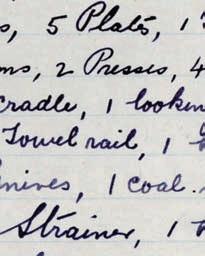 s, 5 Plats, 1
ms, 2 Presses, 4
cradle, 1 lookin
Towel rail, 1
nives, 1 coal
Strainer, 1